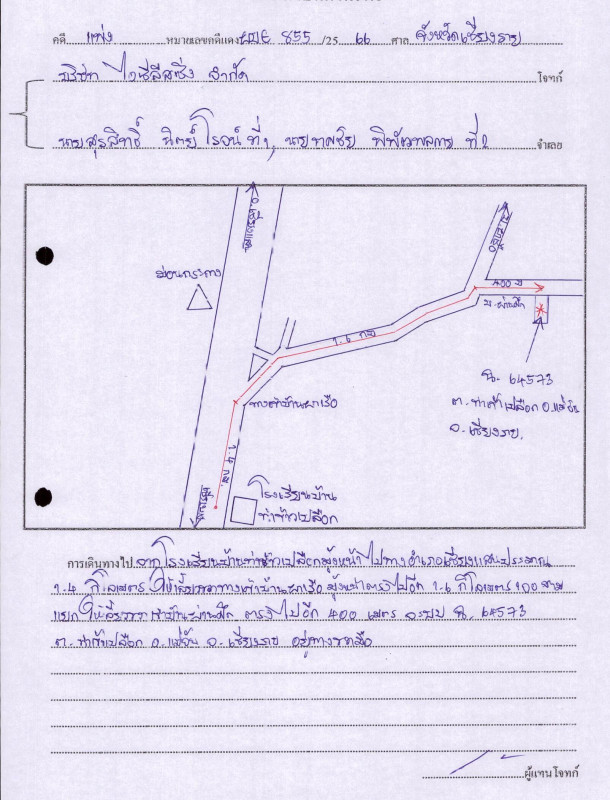 คดี แพ่ง หมายเลขคดีแดง ผบE 855 /25 66 ศาล จังหวัดเชียงราย
บริษัท ไอซีลีสซิ่ง จำกัด โจทก์
นายสุรสิทธิ์ ที่ 1, นาย ที่ 2 จำเลย
ม่อนกระทาง
400 ม
1.6 กม
บ.ผ่านศึก
ฉ. 64573
ต. ท่าข้าวเปลือก อ.แม่จัน
จ. เชียงราย.
ทางเข้าบ้านผาเรือ
1.4 กม.
โรงเรียนบ้าน
ท่าข้าวเปลือก
การเดินทางไป จากโรงเรียนบ้านท่าข้าวเปลือกมุ่งหน้าไปทางอำเภอเชียงแสนประมาณ
1.4 กิโลเมตร ให้เลี้ยวขวาทางเข้าบ้านผาเรือ มุ่งหน้าตรงไปอีก 1.6 กิโลเมตร เจอสาม
แยกให้เลี้ยวขวา เข้าบ้านผ่านศึก ตรงไปอีก 400 เมตร จะพบ ฉ. 64573
ต. ท่าข้าวเปลือก อ. แม่จัน จ. เชียงราย อยู่ทางขวามือ
ผู้แทนโจทก์